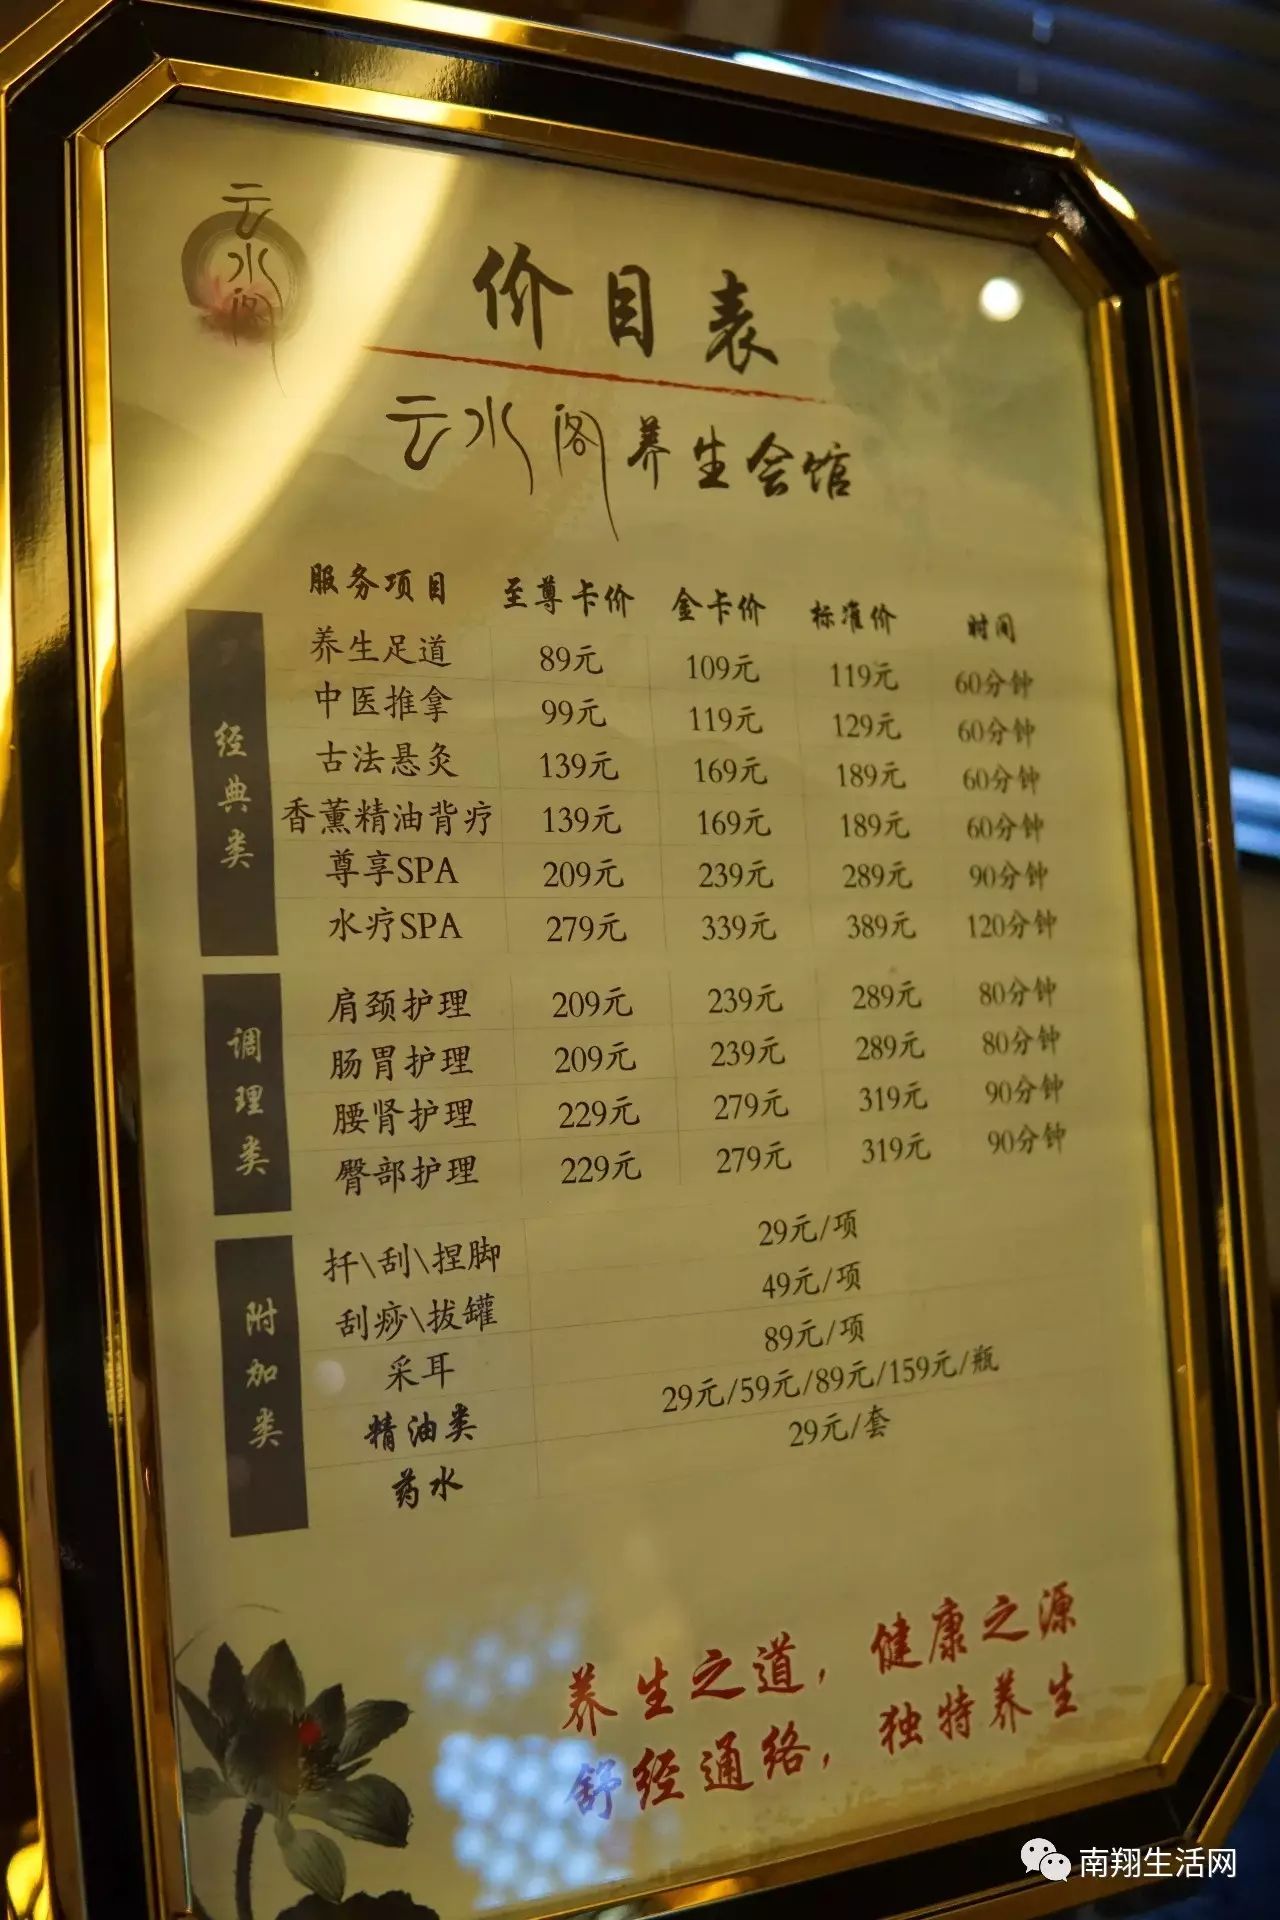 云水阁
价目表
云水阁养生会馆
服务项目 至尊卡价 金卡价 标准价 时间
经典类
养生足道 89元 109元 119元 60分钟
中医推拿 99元 119元 129元 60分钟
古法悬灸 139元 169元 189元 60分钟
香薰精油背疗 139元 169元 189元 60分钟
尊享SPA 209元 239元 289元 90分钟
水疗SPA 279元 339元 389元 120分钟
调理类
肩颈护理 209元 239元 289元 80分钟
肠胃护理 209元 239元 289元 80分钟
腰肾护理 229元 279元 319元 90分钟
臀部护理 229元 279元 319元 90分钟
附加类
扦\刮\捏脚 29元/项
刮痧\拔罐 49元/项
采耳 89元/项
精油类 29元/59元/89元/159元/瓶
药水 29元/套
养生之道，健康之源
舒经通络，独特养生
南翔生活网